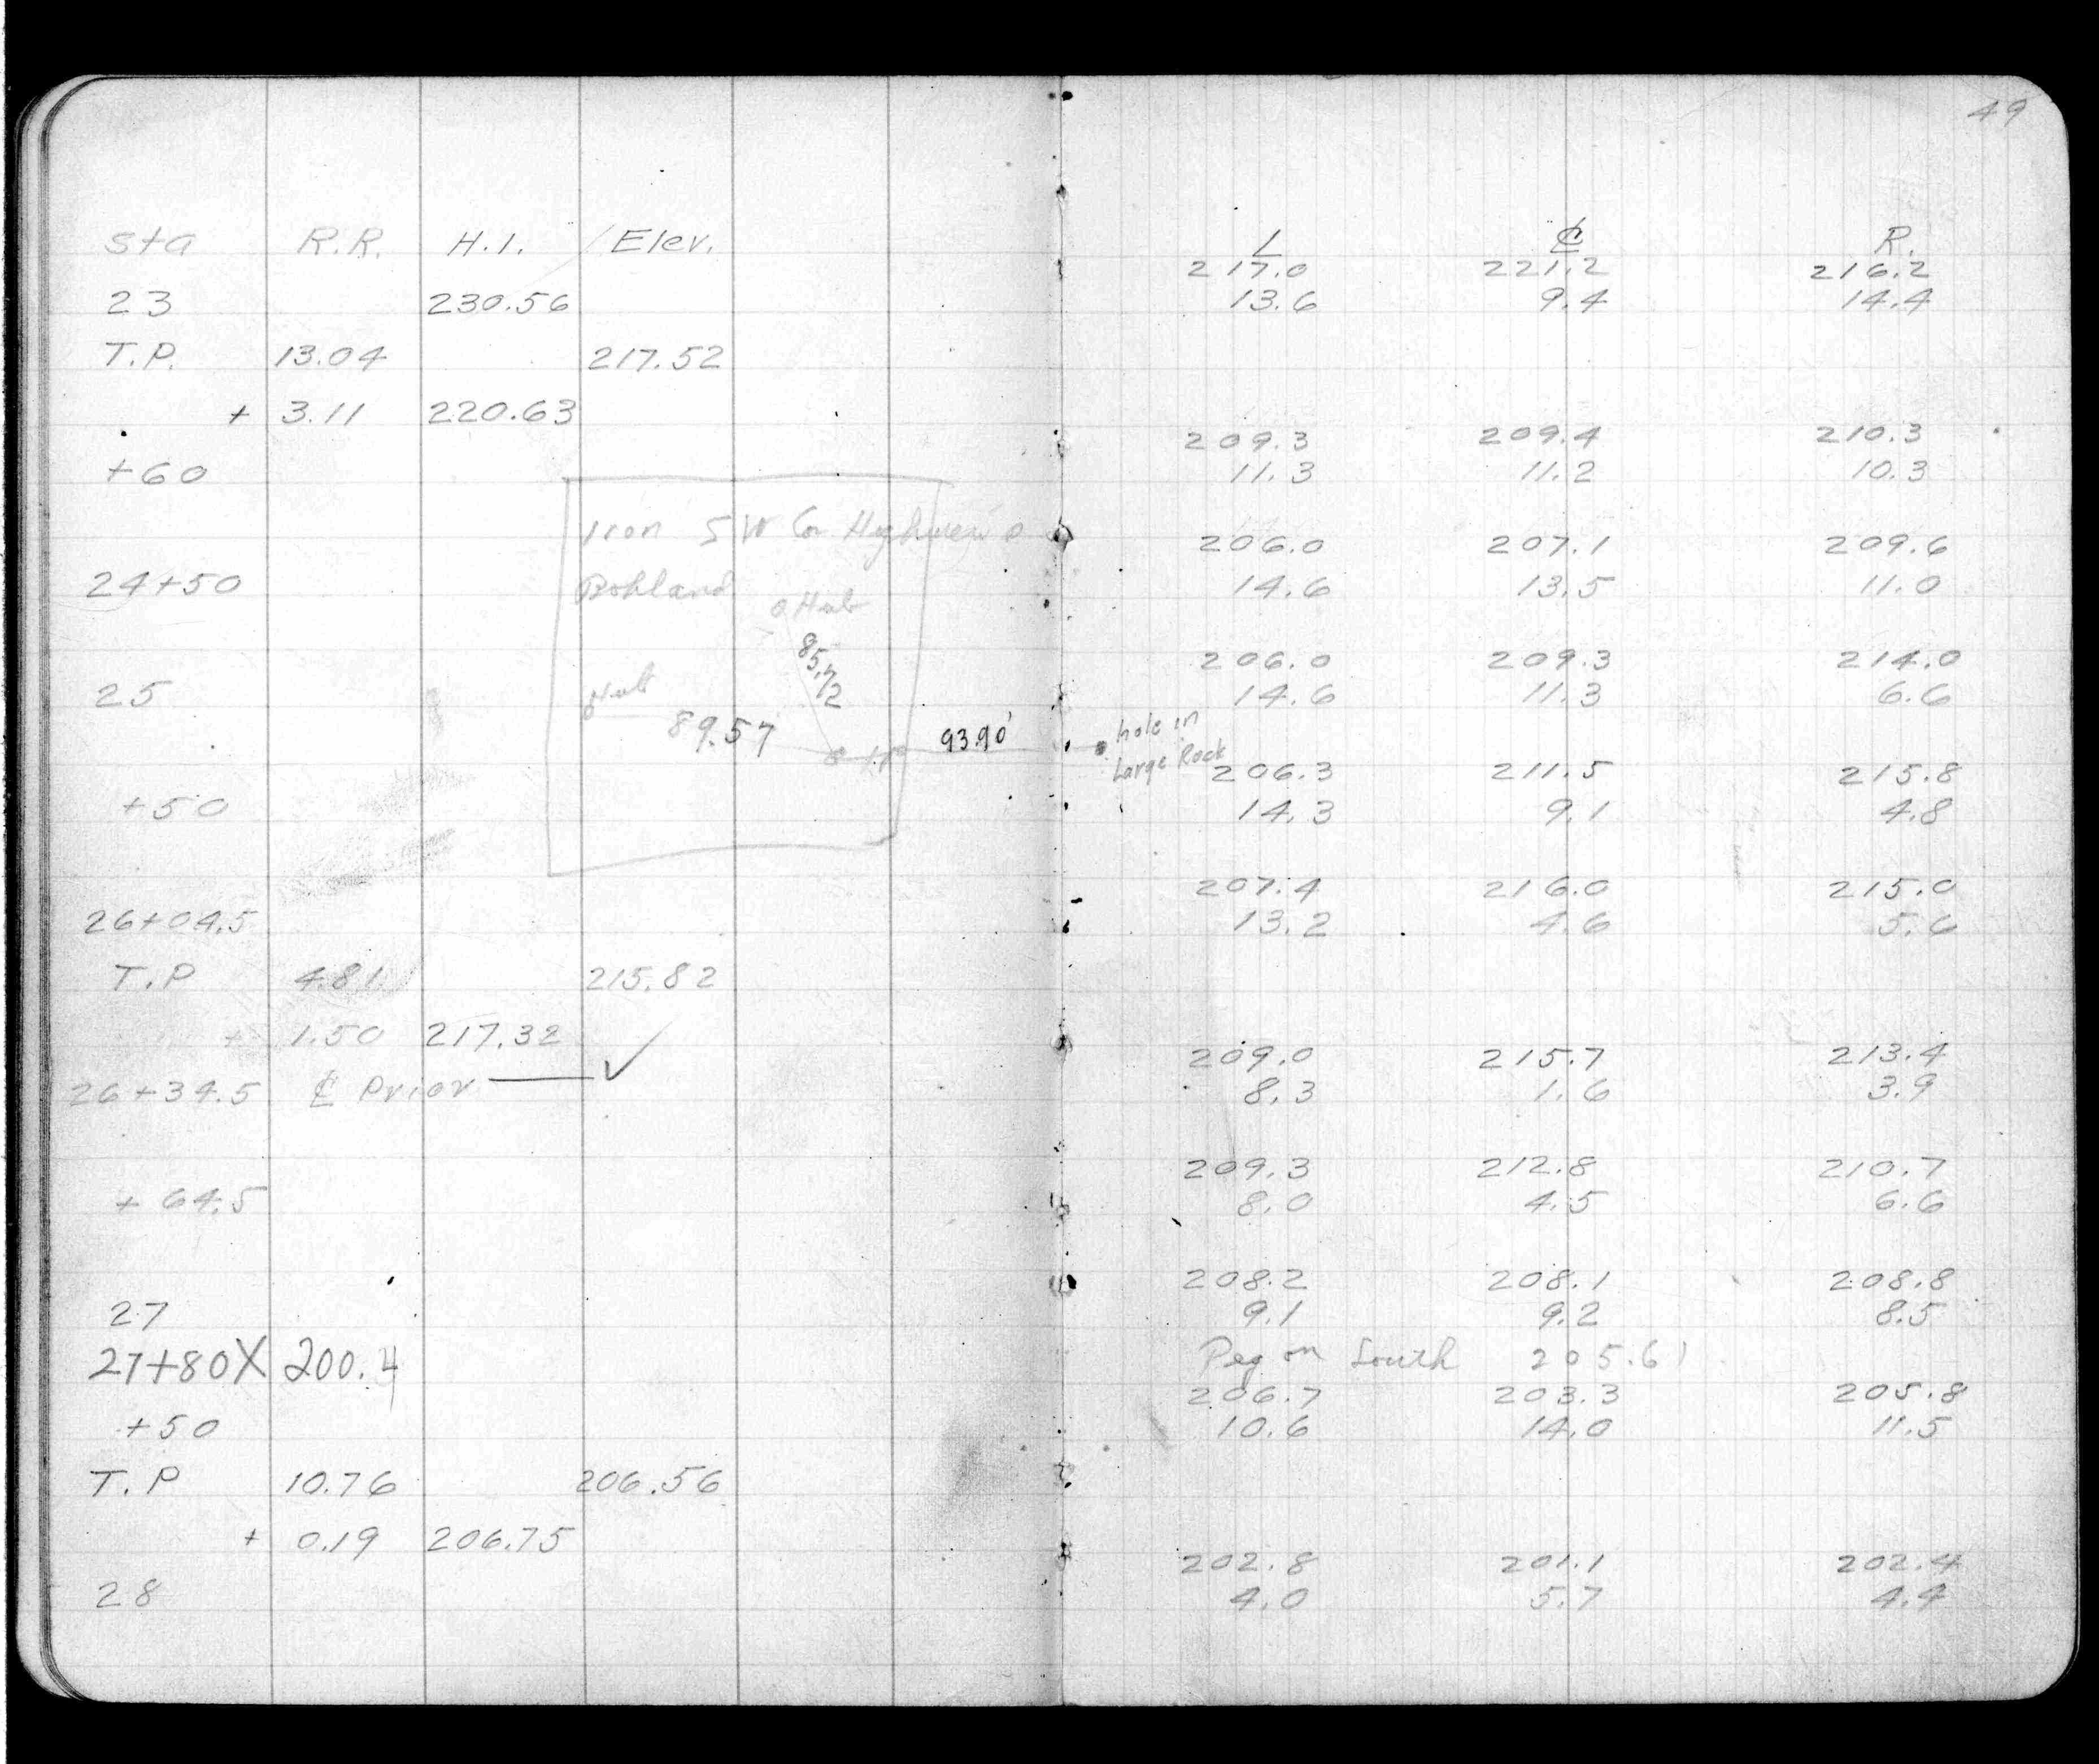 49
Sta R.R. H.I. Elev. L ℄ R.
217.0 221.2 216.2
23 230.56 13.6 9.4 14.4
T.P. 13.04 217.52
+ 3.11 220.63
209.3 209.4 210.3
+60 11.3 11.2 10.3
Iron SW Cor
206.0 207.1 209.6
24+50 Bohland 14.6 13.5 11.0
Hub
85.72
206.0 209.3 214.0
25 Hub 14.6 11.3 6.6
89.57 93.90' hole in
Large Rock
206.3 211.5 215.8
+50 14.3 9.1 4.8
207.4 216.0 215.0
26+04.5 13.2 4.6 5.6
T.P 4.81 215.82
+ 1.50 217.32
209.0 215.7 213.4
26+34.5 ℄ Prior ✓ 8.3 1.6 3.9
209.3 212.8 210.7
+64.5 8.0 4.5 6.6
208.2 208.1 208.8
27 9.1 9.2 8.5
27+80X 200.4 Peg on South 205.61
206.7 203.3 205.8
+50 10.6 14.0 11.5
T.P 10.76 206.56
+ 0.19 206.75
202.8 201.1 202.4
28 4.0 5.7 4.4